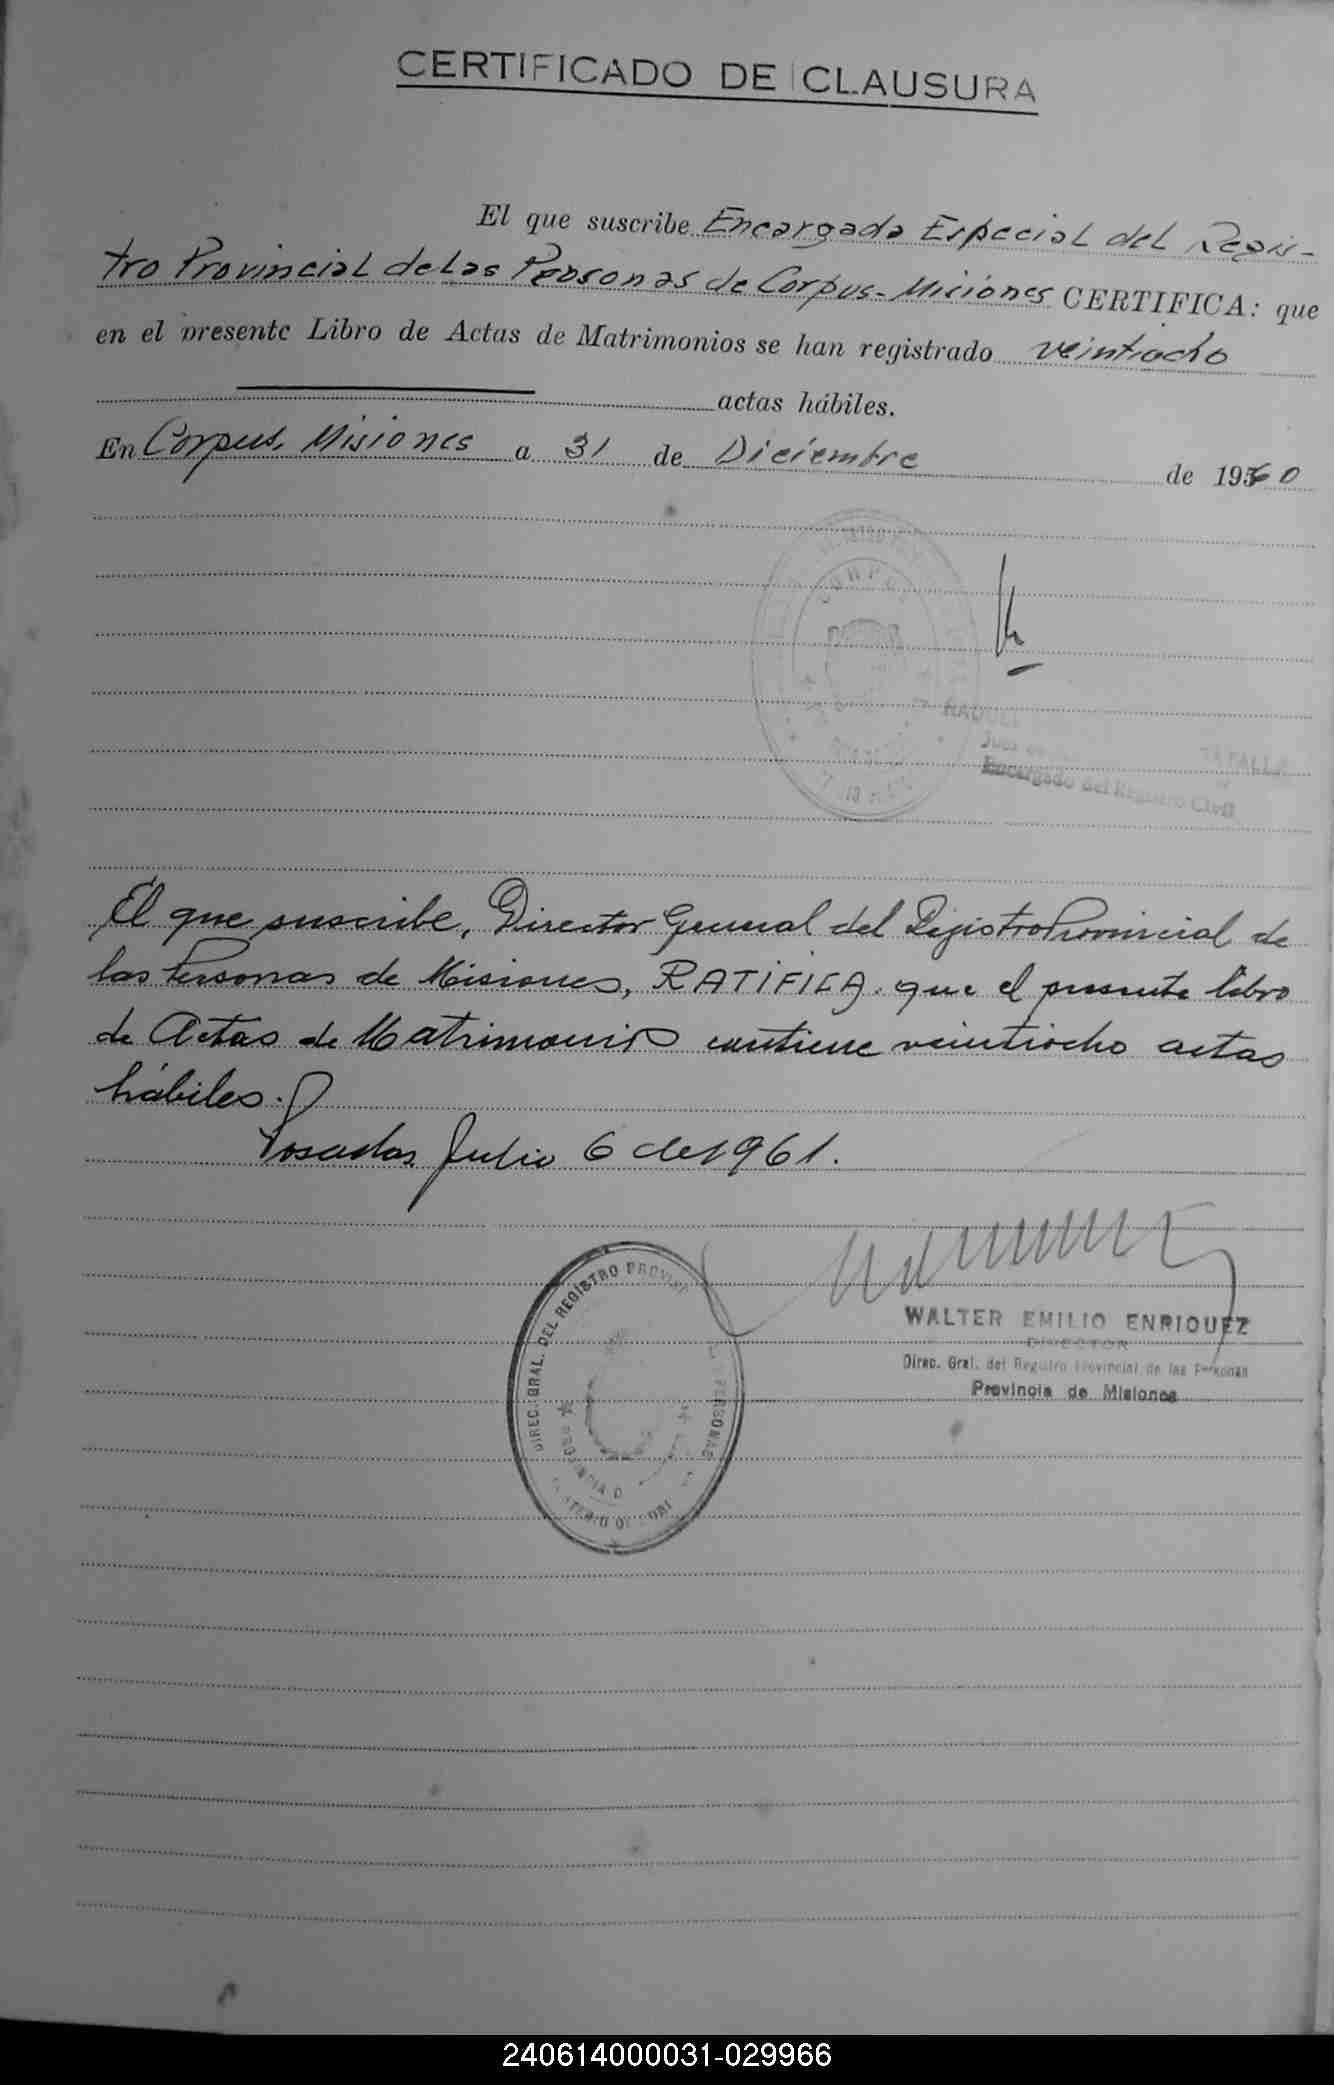 CERTIFICADO DE CLAUSURA
El que suscribe Encargada Especial del Regis-
tro Provincial de las Personas de Corpus-Misiones CERTIFICA: que
en el presente Libro de Actas de Matrimonios se han registrado veintiocho
actas hábiles.
En Corpus, Misiones a 31 de Diciembre de 1960
CORPUS
RAQUEL
Juez
TAFALLA
Encargado del Registro Civil
El que suscribe, Director General del Registro Provincial de
las Personas de Misiones, RATIFICA que el presente libro
de Actas de Matrimonios contiene veintiocho actas
hábiles.
Posadas Julio 6 de 1961.
DIREC. GRAL. DEL REGISTRO PROVINC
PERSONAS
PROVINCIA D
WALTER EMILIO ENRIQUEZ
DIRECTOR
Direc. Gral. del Registro Provincial de las Personas
Provincia de Misiones
240614000031-029966